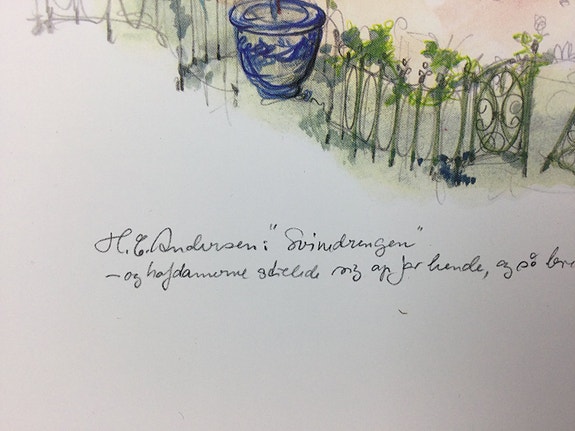 H.C. Andersen: "Svinedrengen"
– og hofdamerne stillede sig op for hende, og så